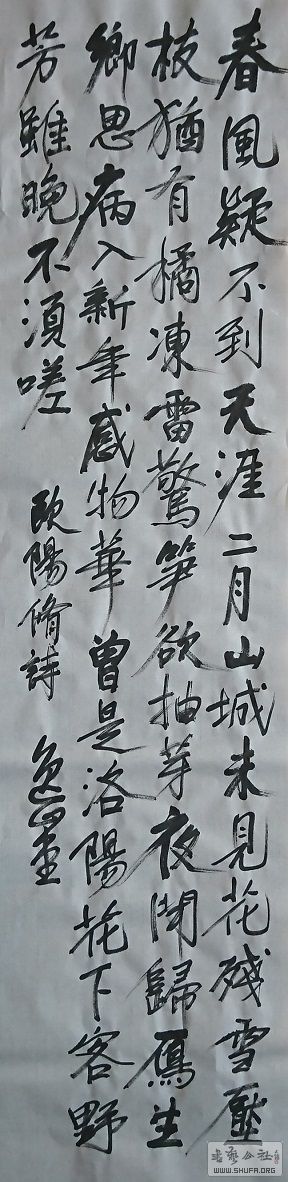 春風疑不到天涯二月山城未見花殘雪壓
枝猶有橘凍雷驚笋欲抽芽夜聞歸雁生
鄉思病入新年感物華曾是洛陽花下客野
芳雖晚不須嗟
歐陽脩詩
WWW.SHUFA.ORG